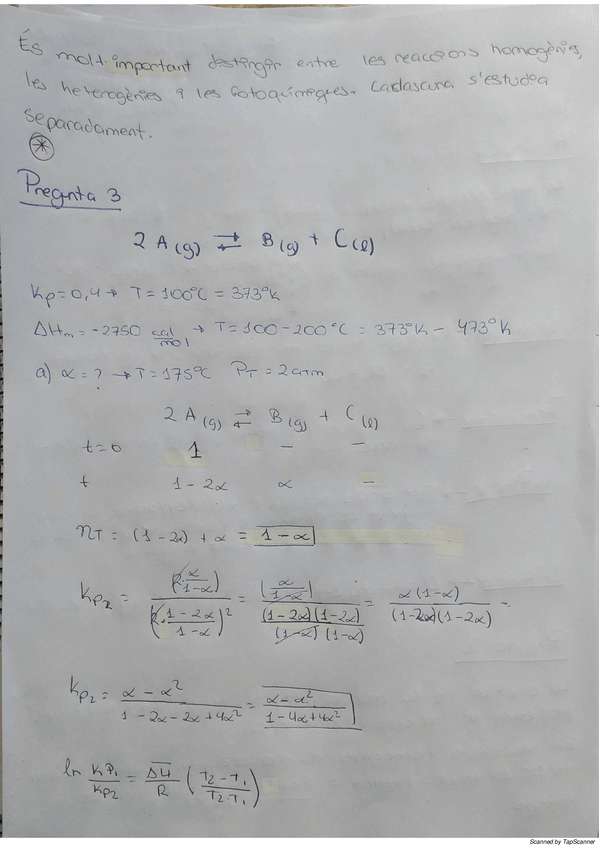 És molt important destingir entre les reaccions homogènies,
les heterogènies i les fotoquímiques. Cadascuna s'estudia
separadament.
Pregunta 3
2 A (g) ⇄ B (g) + C (l)
Kp = 0,4 → T = 100°C = 373°K
ΔHm = -2750 cal/mol → T = 100 - 200 °C = 373°K - 473°K
a) α = ? → T = 175°C PT = 2 atm
2 A (g) ⇄ B (g) + C (l)
t = 0 1 - -
t 1 - 2α α -
nT = (1 - 2α) + α = 1 - α
Kp2 = (P · α/(1-α)) / (P · (1-2α)/(1-α))² = (α/(1-α)) / ((1-2α)(1-2α)/(1-α)(1-α)) = α(1-α) / (1-2α)(1-2α) =
Kp2 = (α - α²) / (1 - 2α - 2α + 4α²) = (α - α²) / (1 - 4α + 4α²)
ln Kp1/Kp2 = ΔH/R ((T2 - T1) / (T2 · T1))
Scanned by TapScanner